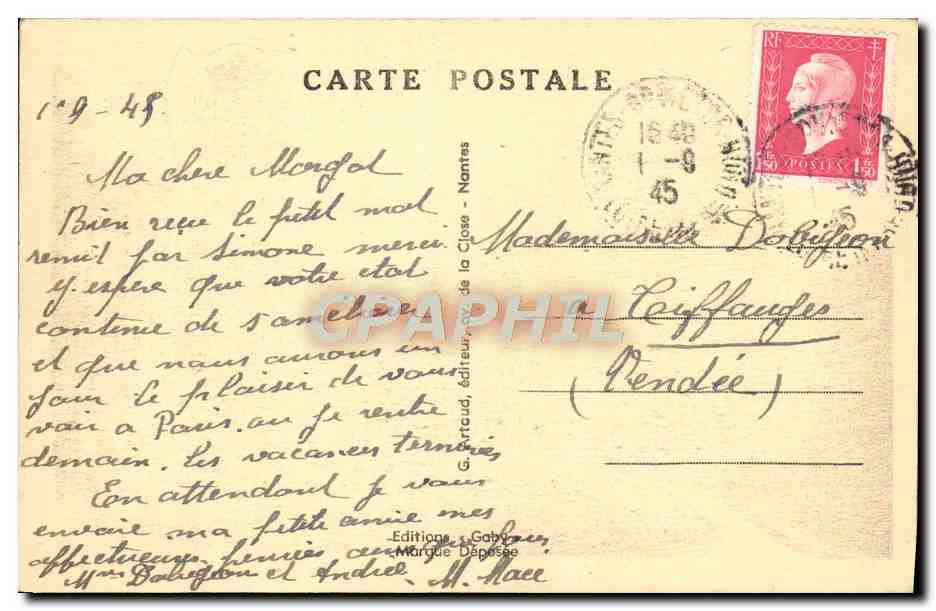 CARTE POSTALE
1-9-45
Ma chere Margot
Bien reçu le petit mot
remit par Simone merci
j'y espere que votre etat
continue de s'ameliorer
et que nous aurons un
jour le plaisir de vous
voir a Paris. ou je rentre
demain. les vacances terminées
En attendant je vous
envoie ma petite amie mes
affectueuses pensées ainsi que
Mme Dobigeon et Andree. M. Mace
G. Artaud, éditeur, av. de la Close - Nantes
Editions Gaby
Marque Déposée
Mademoiselle Dobigeon
a Tiffauges
(Vendée)
RF
POSTES
1F50
1F50
NANTES
16 40
1 -9
45
CPAPHIL